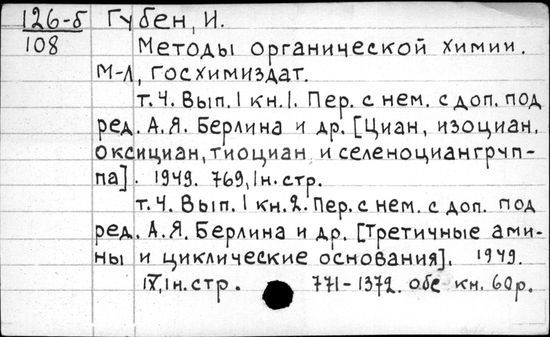 126-б Губен, И.
108 Методы органической химии.
М-Л, Госхимиздат.
т.4. Вып.1 кн.1. Пер. с нем. с доп. под
ред. А.Я. Берлина и др. [Циан, изоциан,
оксициан, тиоциан и селеноциангрчп-
па]. 1949. 769, 1н.стр.
т.4. Вып.1 кн.2. Пер. с нем. с доп. под
ред. А.Я. Берлина и др. [Третичные ами-
ны и циклические основания]. 1949.
IX, 1н.стр. 771-1372. обе кн. 60р.